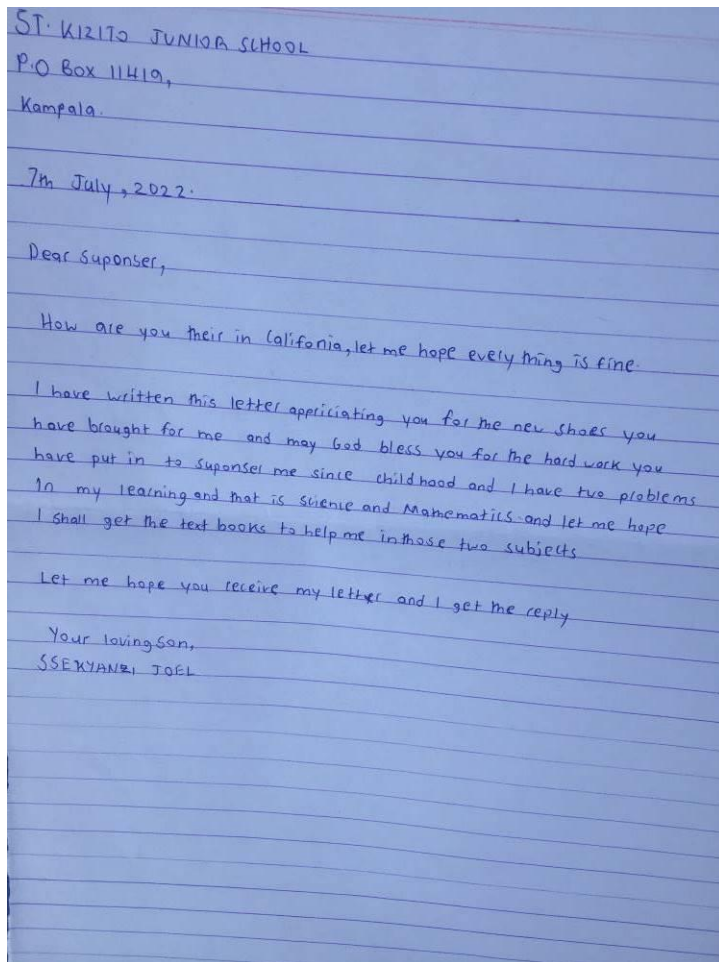 ST. KIZITO JUNIOR SCHOOL
P.O Box 11419,
Kampala.
7th July, 2022.
Dear Suponser,
How are you their in Califonia, let me hope every thing is fine.
I have written this letter appriciating you for the new shoes you
have brought for me and may God bless you for the hard work you
have put in to suponser me since childhood and I have two problems
In my learning and that is science and Mathematics. and let me hope
I shall get the text books to help me in those two subjects
Let me hope you receive my letter and I get the reply
Your loving son,
SSEKYANZI JOEL